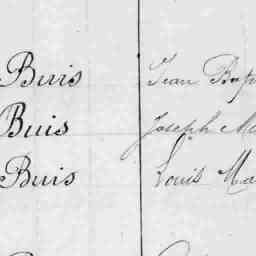 Buis Jean Bap
Buis Joseph Ma
Buis Louis Ma